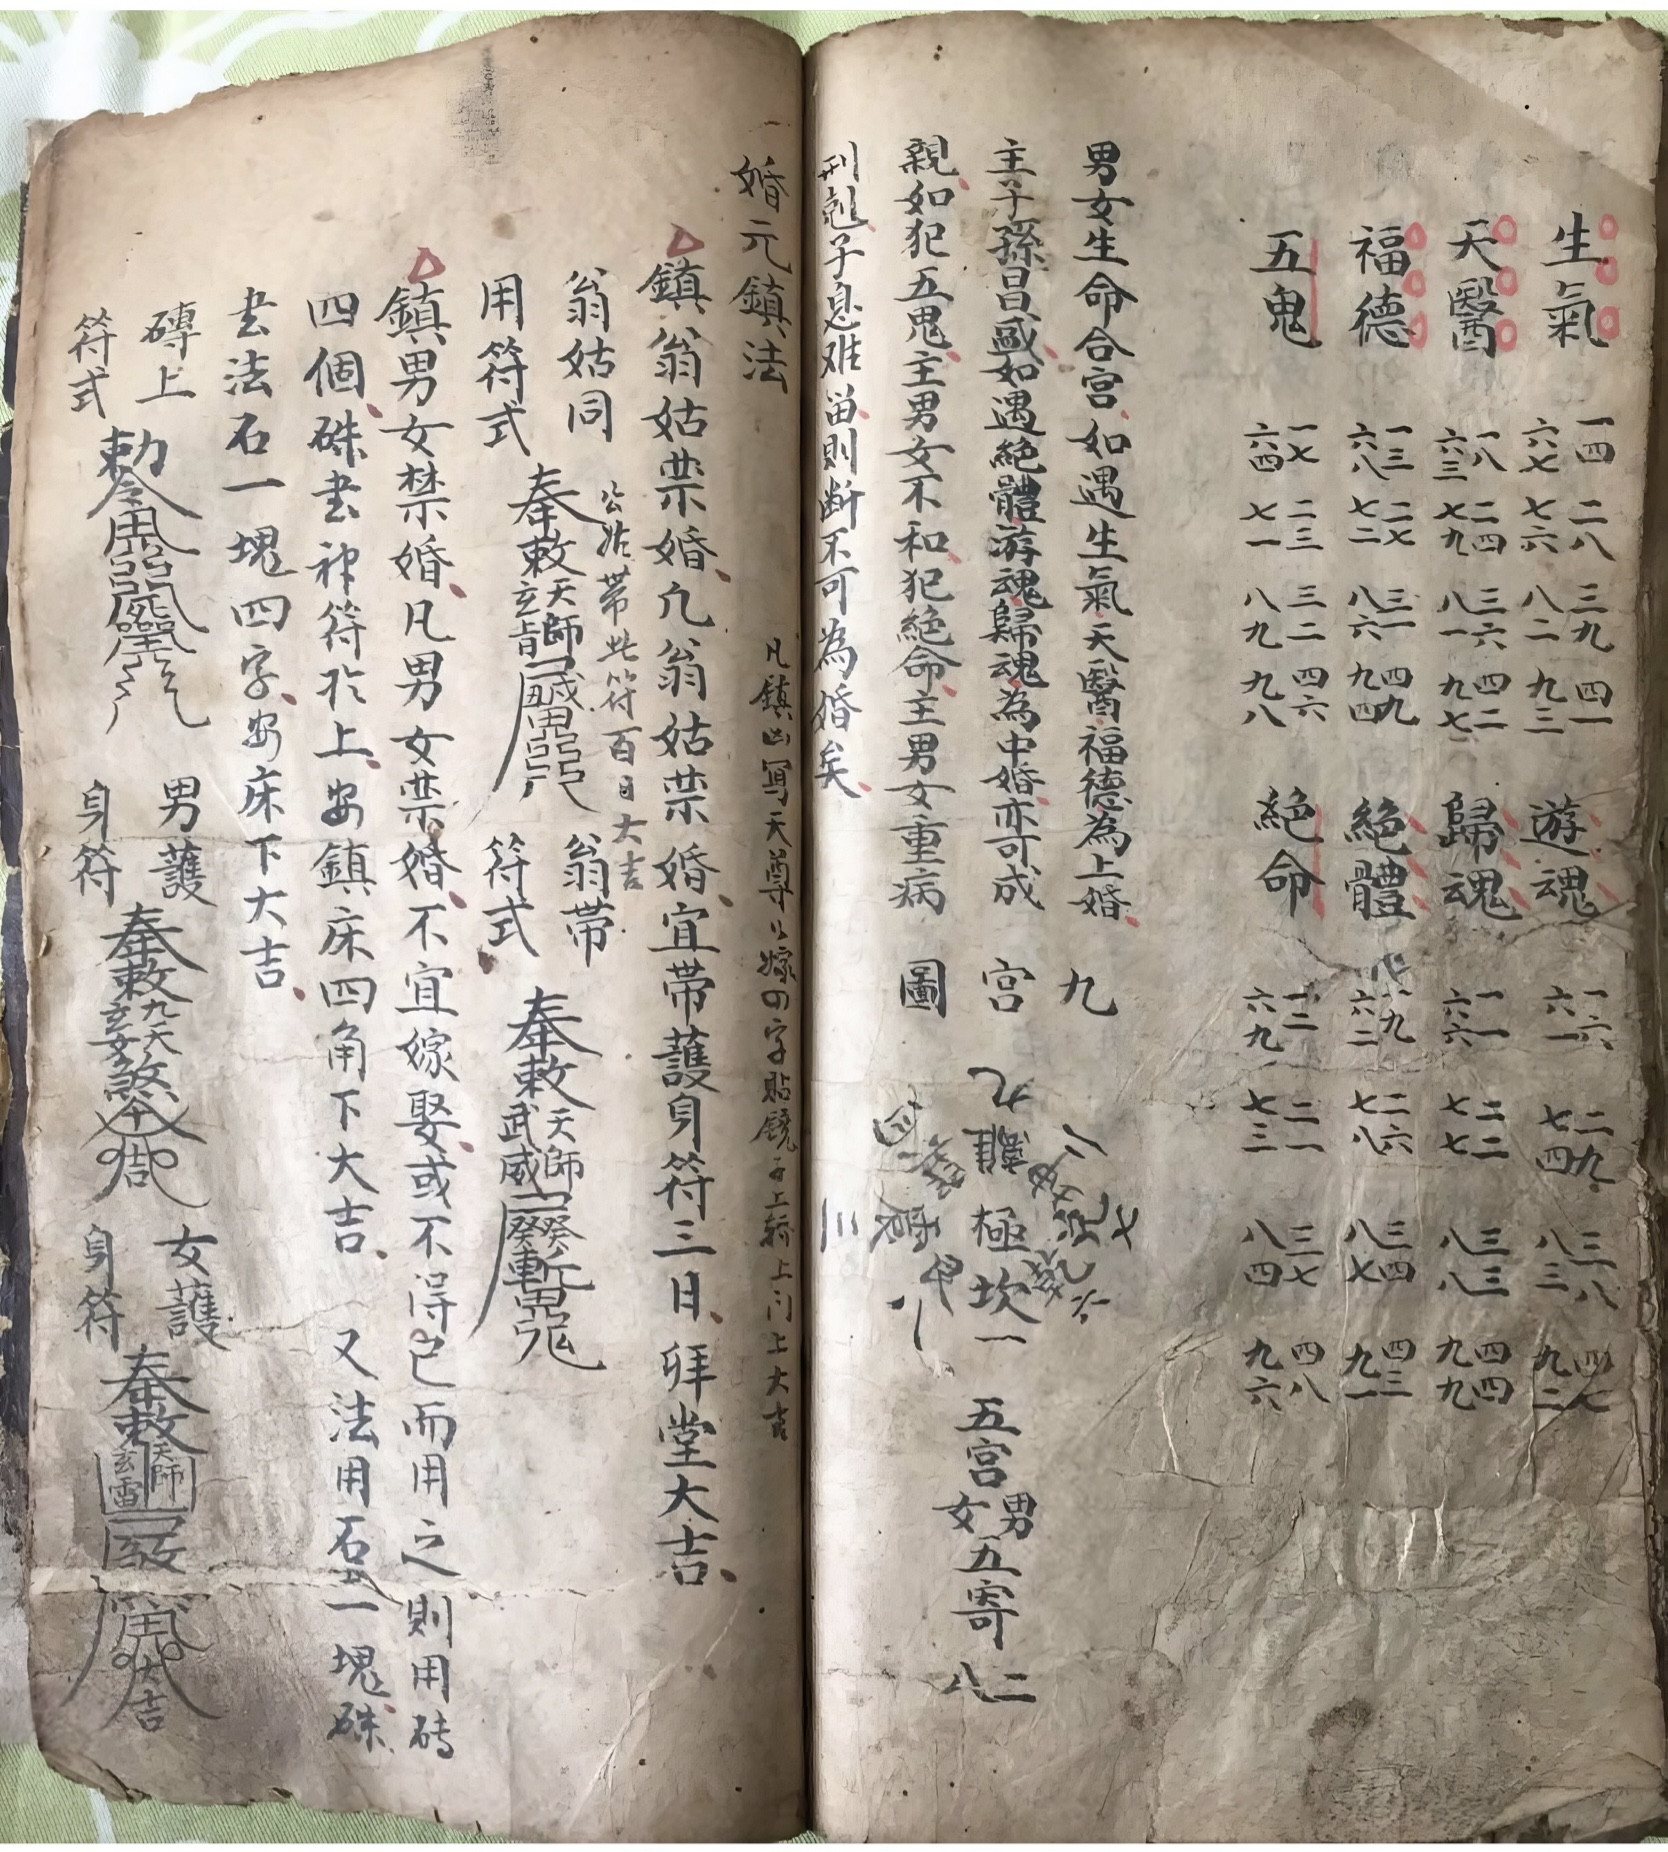 生氣 一四 六七 二八 七六 三九 八二 四一 九三 遊魂 一六 六一 二九 七四 三八 八三 四七 九二
天醫 一八 六三 二四 七九 三六 八一 四二 九七 歸魂 一一 六六 二二 七七 三三 八八 四四 九九
福德 一三 六八 二七 七二 三一 八六 四九 九四 絕體 一九 六二 二六 七八 三四 八七 四三 九一
五鬼 一七 六四 二三 七一 三二 八九 四六 九八 絕命 一二 六九 二一 七三 三七 八四 四八 九六
男女生命合宮如遇生氣天醫福德為上婚
主子孫昌盛如遇絕體游魂歸魂為中婚亦可成
親如犯五鬼主男女不和犯絕命主男女重病
刑剋子息难留則断不可為婚矣
九
宮
圖
極
坎一
五宮
男五寄二
女 八
一婚元鎮法
凡鎮凶写天尊公嫁四字貼鏡子上轿上门上大吉
鎮翁姑禁婚凢翁姑禁婚宜帯護身符三日拜堂大吉
翁姑同
用符式
公姑带此符百日大吉
奉敕天師
翁帯
符式
奉敕天師武威
鎮男女禁婚凡男女禁婚不宜嫁娶或不得已而用之則用砖
四個硃書神符於上安鎮床四角下大吉 又法用石一塊硃
書法石一塊四字安床下大吉
磚上
符式
勅令
男護
身符
奉敕九天玄女煞
女護
身符
奉敕天師玄雷
大吉